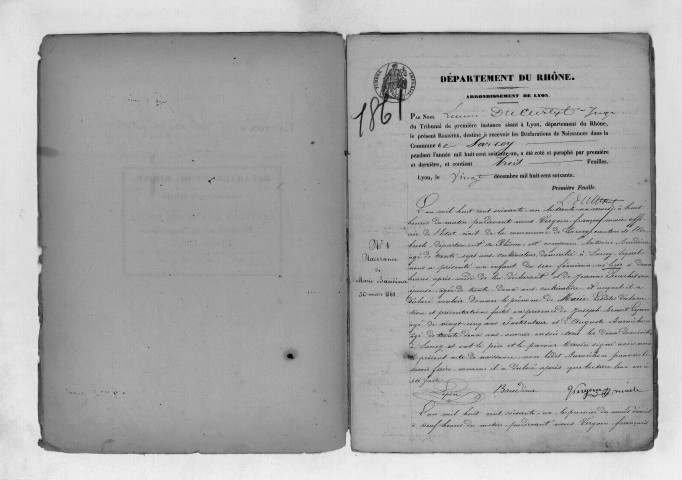 1861
DÉPARTEMENT DU RHÔNE.
ARRONDISSEMENT DE LYON.
PAR NOUS, Juge
du Tribunal de première instance séant à Lyon, département du Rhône,
le présent REGISTRE, destiné à recevoir les Déclarations de Naissances dans la
Commune de Sarcey
pendant l'année mil huit cent soixante-un, a été coté et paraphé par première
et dernière, et contient trois Feuilles.
Lyon, le Vingt décembre mil huit cent soixante.
Première Feuille.
L'an mil huit cent soixante un le trente un mars à huit
heures du matin pardevant nous Vergoin françois maire offi-
cier de l'état civil de la commune de Sarcey canton de
département du Rhône est comparu Antoine
N° 1
Naissance
de
Marie
30 mars 1861
âgé de trente sept ans cultivateur domicilié à Sarcey lequel
nous a présenté un enfant du sexe féminin
heures après midi de lui déclarant et de Jeanne
épouse âgée de trente deux ans et auquel il a
déclaré vouloir donner le prénom de Marie Lesdites déclara-
tion et présentation faites en présence de Joseph Lyon
âgé de vingt cinq ans instituteur et d'Auguste
âgé de trente deux ans tous les deux
à Sarcey et ont le père et le premier témoin signé avec nous
le présent acte de naissance non ledit pour ne
savoir faire comme il a déclaré après que lecture leur en a
été faite
Lyon Vergoin maire
L'an mil huit cent soixante un le premier du mois d'avril
à neuf heures du matin pardevant nous Vergoin françois